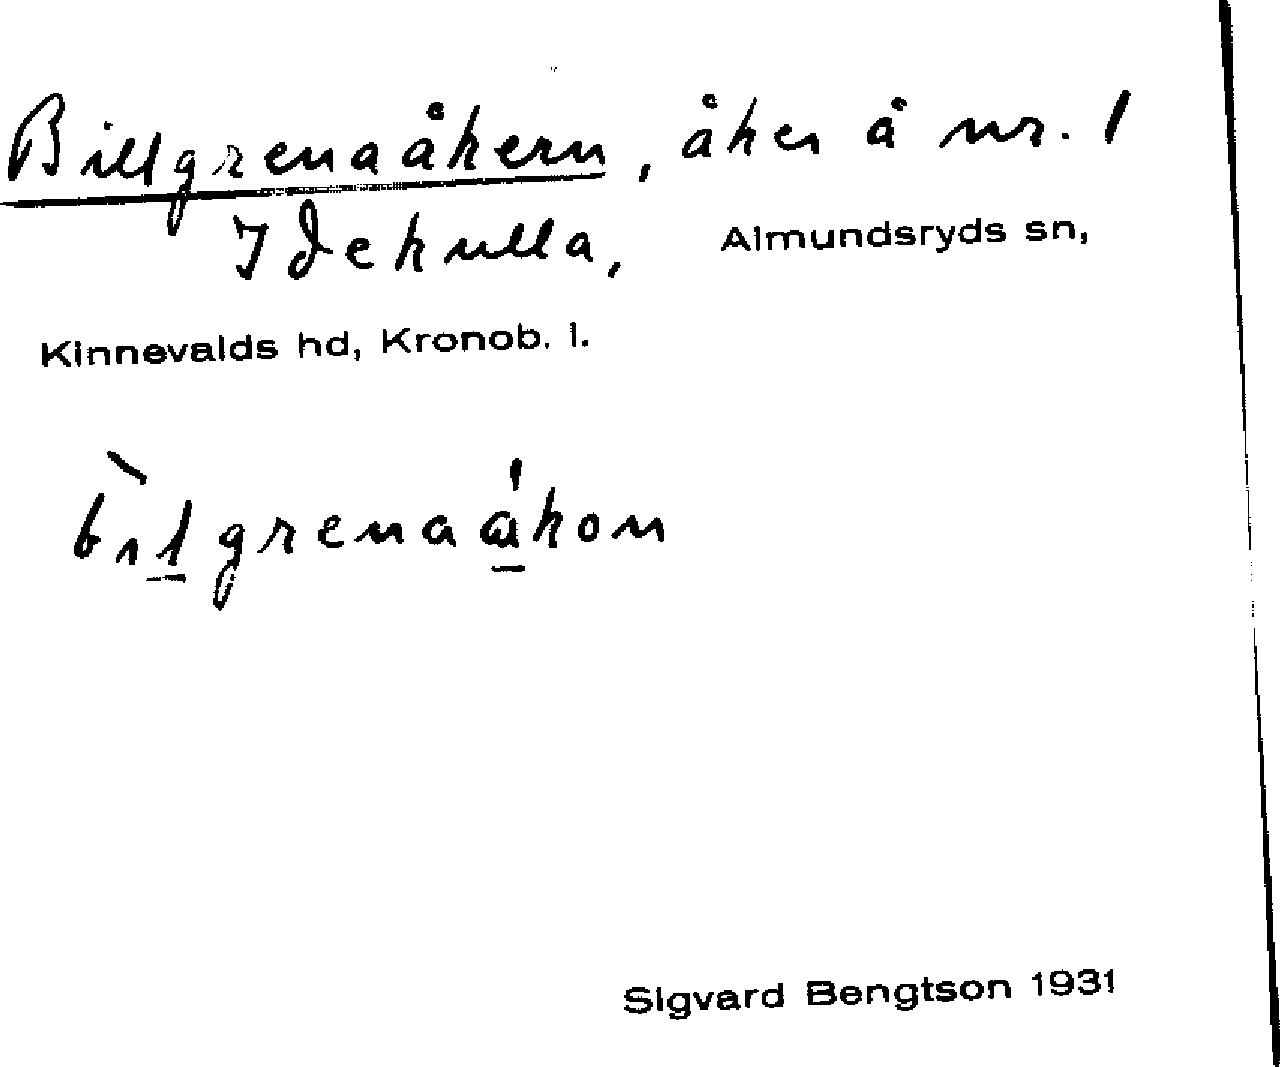 Billgrenaåkern, åker å nr. 1
Idekulla, Almundsryds sn,
Kinnevalds hd, Kronob. l.
bìlgrenaåkon
Sigvard Bengtson 1931